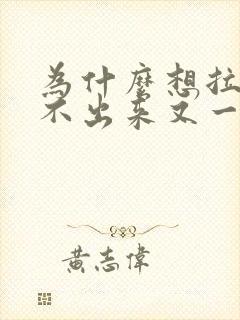 為什麼想拉
不出来又一
黃志偉